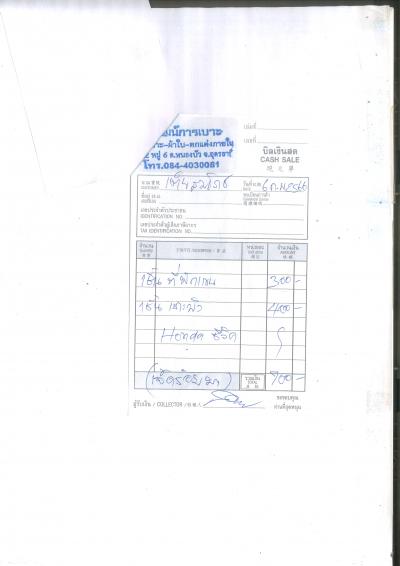 มน์การเบาะ
าะ-ผ้าใบ-ตกแต่งภายใน
หมู่ 6 ต.หนองบัว จ.อุดรธานี
โทร.084-4030081
เล่มที่
เลขที่
บิลเงินสด
CASH SALE
นาม
วันที่
ที่อยู่
ADDRESS
เลขประจำตัวประชาชน
IDENTIFICATION NO.
เลขประจำตัวผู้เสียภาษีอากร
TAX IDENTIFICATION NO.
จำนวน รายการ หน่วยละ จำนวนเงิน
1 ชิ้น ที่พักแขน 300-
1 ชิ้น 400-
Honda ซีวิค
(เจ็ดร้อยบาท) รวมเงิน TOTAL 700-
ผู้รับเงิน / COLLECTOR
ขอขอบคุณ
ท่านที่อุดหนุน